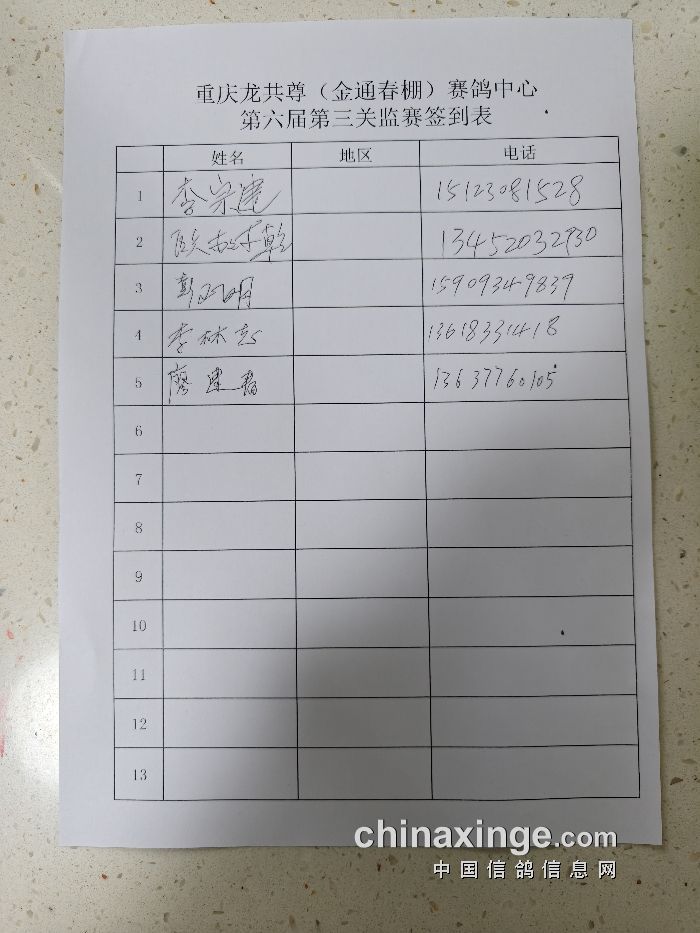 重庆龙共尊（金通春棚）赛鸽中心
第六届第三关监赛签到表
姓名 地区 电话
1 李宗建 15123081528
2 13452032930
3 彭 明 15909349839
4 李林志 13618331418
5 廖建春 13637760105
6
7
8
9
10
11
12
13
chinaxinge.com
中国信鸽信息网